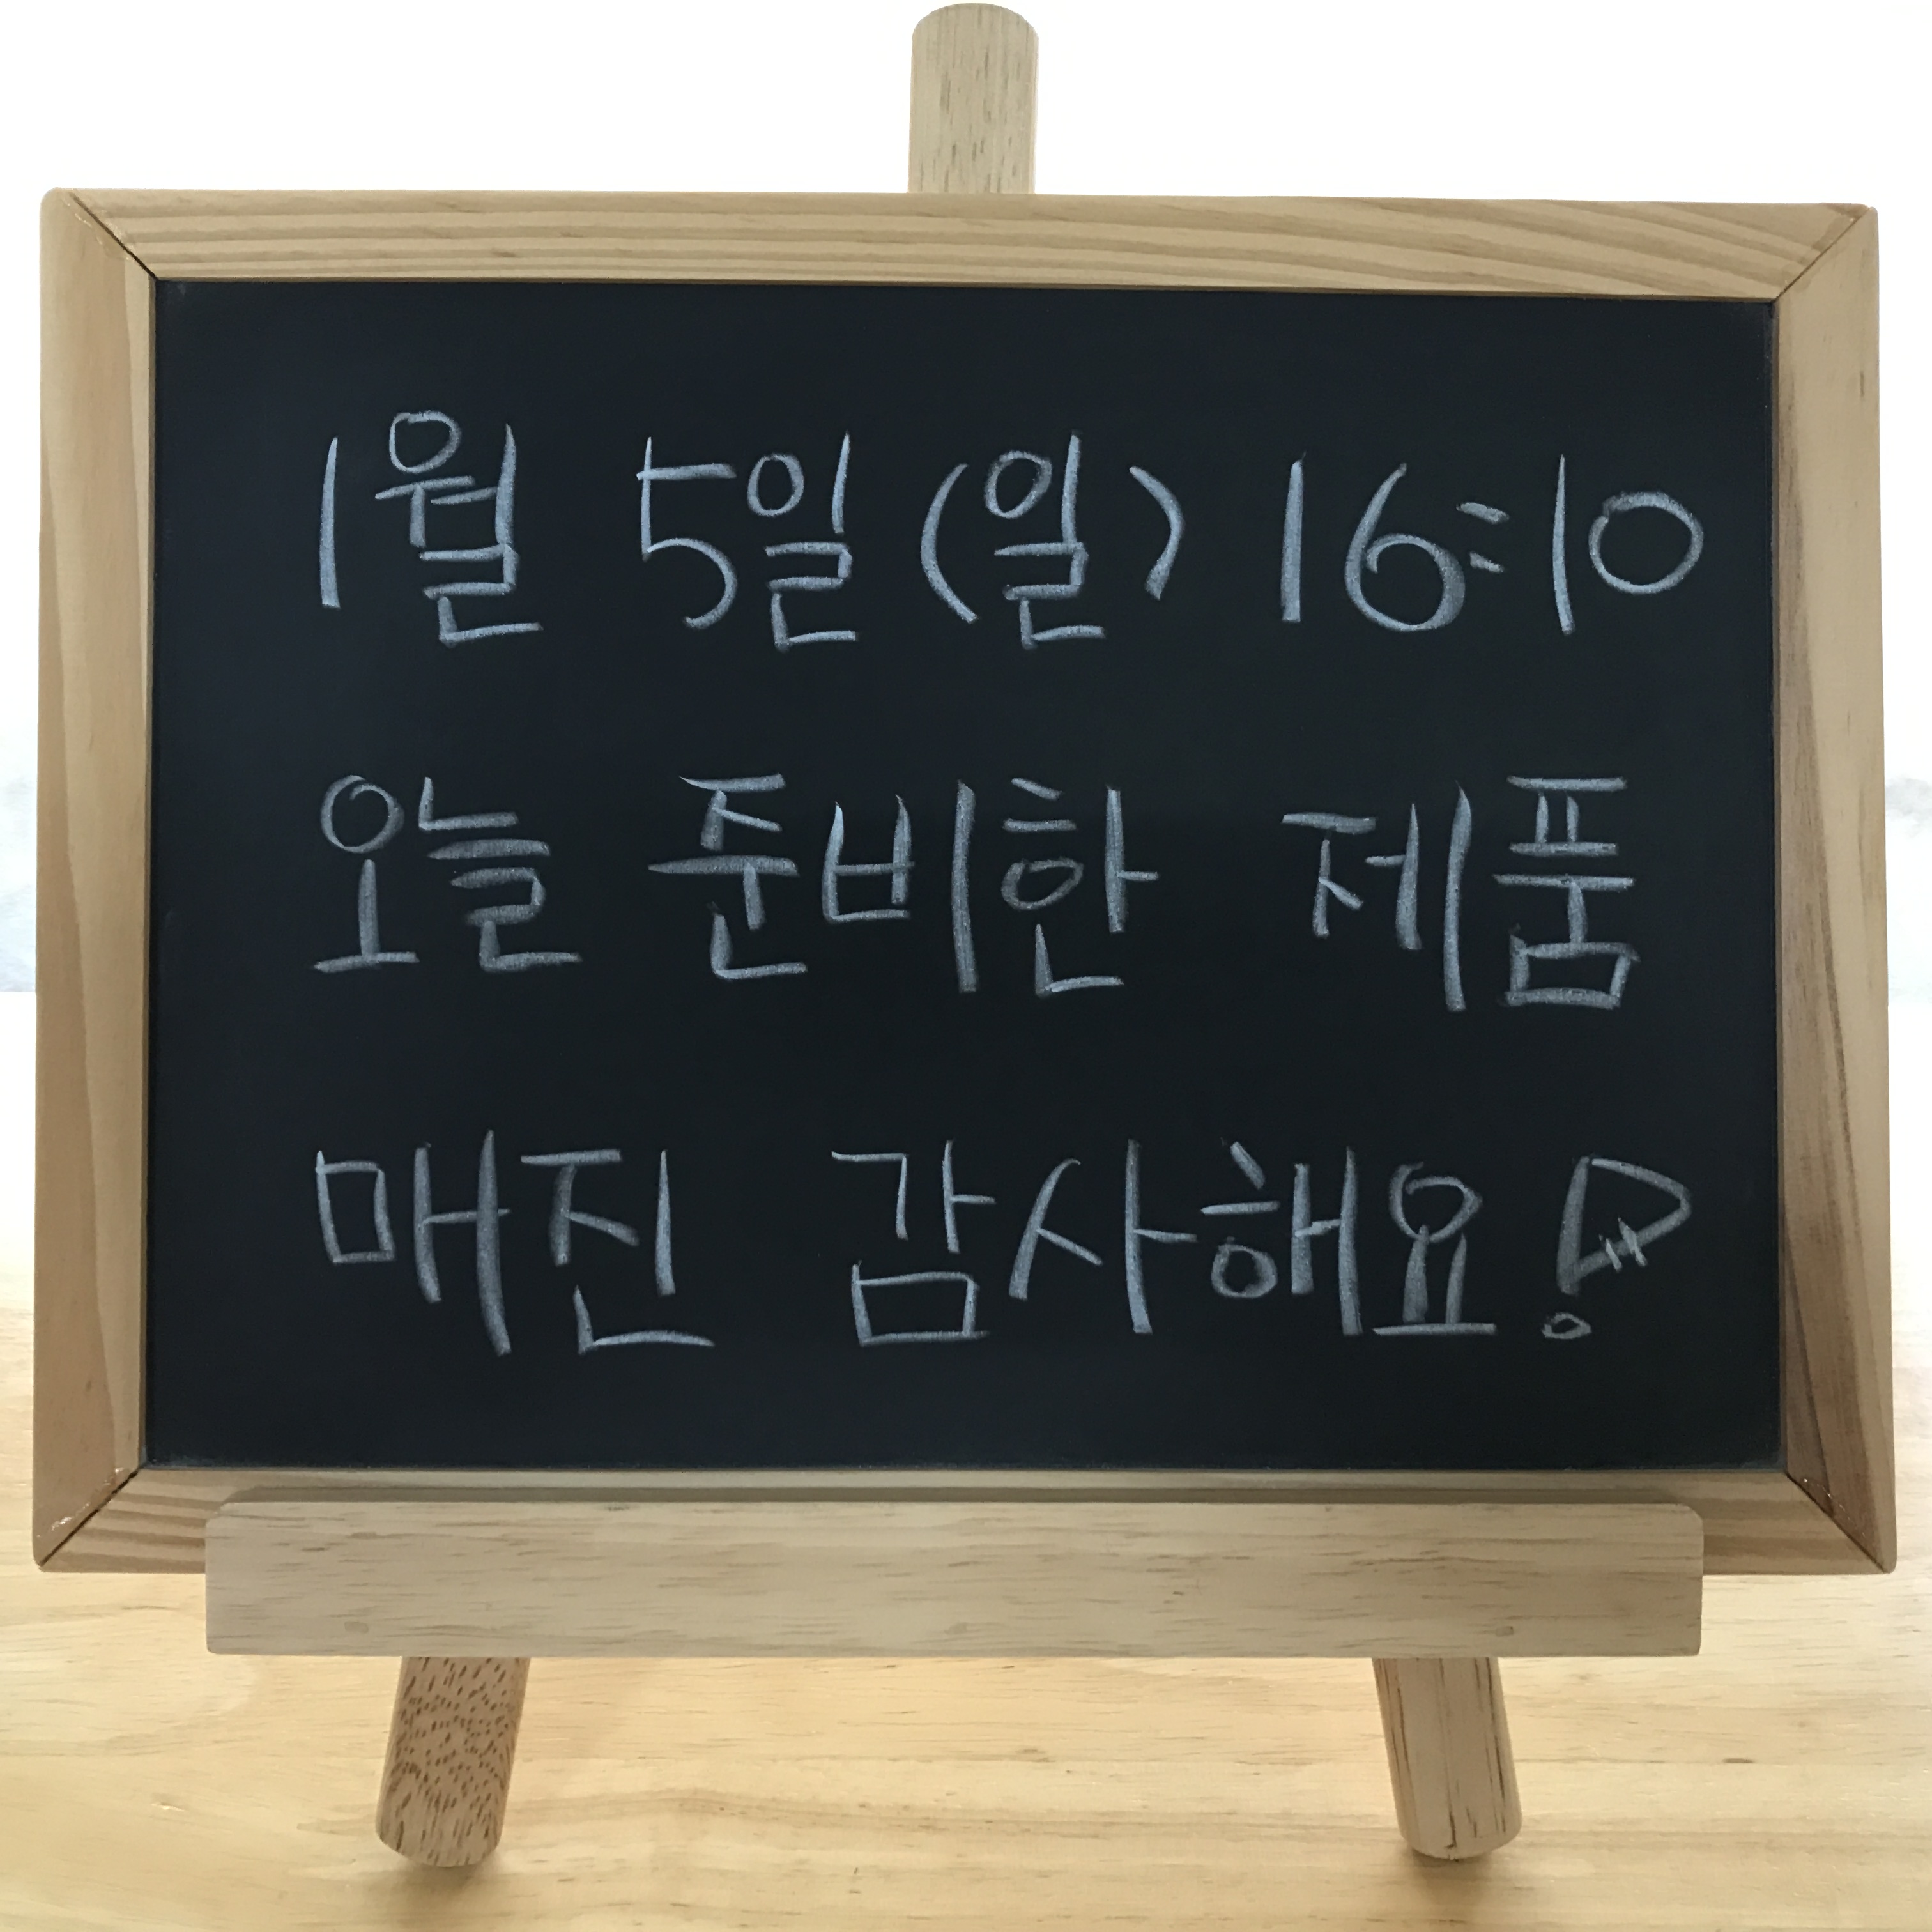 1월 5일(일) 16:10
오늘 준비한 제품
매진 감사해요!